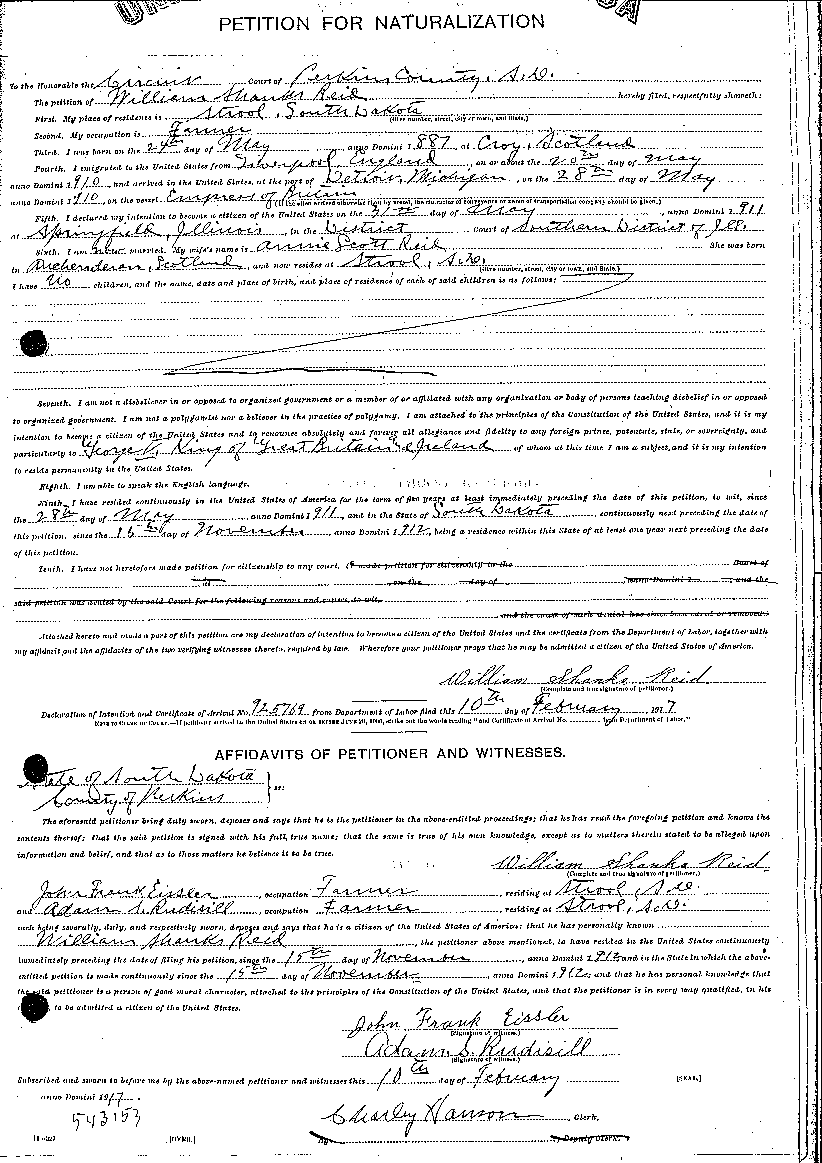 PETITION FOR NATURALIZATION
To the Honorable the Circuit Court of Perkins County, S.D.
The petition of William Shanks Reid hereby filed, respectfully showeth:
First. My place of residence is Strool, South Dakota
(Give number, street, city or town, and State.)
Second. My occupation is Farmer
Third. I was born on the 24th day of May anno Domini 1 887 at Croy, Scotland
Fourth. I emigrated to the United States from Liverpool, England, on or about the 20th day of May
anno Domini 1 910, and arrived in the United States, at the port of Detroit, Michigan, on the 28th day of May
anno Domini 1 910, on the vessel Empress of Britain
(If the alien arrived otherwise than by vessel, the character of conveyance or name of transportation company should be given.)
Fifth. I declared my intention to become a citizen of the United States on the 31st day of May, anno Domini 1 911
at Springfield, Illinois, in the District Court of Southern District of Ill.
Sixth. I am married. My wife's name is Annie Scott Reid She was born
in Scotland, and now resides at Strool, S.D.
(Give number, street, city or town, and State.)
I have no children, and the name, date and place of birth, and place of residence of each of said children is as follows:
Seventh. I am not a disbeliever in or opposed to organized government or a member of or affiliated with any organization or body of persons teaching disbelief in or opposed
to organized government. I am not a polygamist nor a believer in the practice of polygamy. I am attached to the principles of the Constitution of the United States, and it is my
intention to become a citizen of the United States and to renounce absolutely and forever all allegiance and fidelity to any foreign prince, potentate, state, or sovereignty, and
particularly to George V, King of Great Britain & Ireland of whom at this time I am a subject, and it is my intention
to reside permanently in the United States.
Eighth. I am able to speak the English language.
Ninth. I have resided continuously in the United States of America for the term of five years at least immediately preceding the date of this petition, to wit, since
the 28th day of May, anno Domini 1 911, and in the State of South Dakota, continuously next preceding the date of
this petition, since the 15th day of November anno Domini 1 912, being a residence within this State of at least one year next preceding the date
of this petition.
Tenth. I have not heretofore made petition for citizenship to any court. (I made petition for citizenship to the Court of
at on the day of anno Domini 1 , and the
said petition was denied by the said Court for the following reasons and causes, to wit,
and the cause of such denial has since been cured or removed.)
Attached hereto and made a part of this petition are my declaration of intention to become a citizen of the United States and the certificate from the Department of Labor, together with
my affidavit and the affidavits of the two verifying witnesses thereto, required by law. Wherefore your petitioner prays that he may be admitted a citizen of the United States of America.
William Shanks Reid
(Complete and true signature of petitioner.)
Declaration of Intention and Certificate of Arrival No. 925769 from Department of Labor filed this 10th day of February, 191 7
AFFIDAVITS OF PETITIONER AND WITNESSES.
State of South Dakota
County of Perkins ss:
The aforesaid petitioner being duly sworn, deposes and says that he is the petitioner in the above-entitled proceedings; that he has read the foregoing petition and knows the
contents thereof; that the said petition is signed with his full, true name; that the same is true of his own knowledge, except as to matters therein stated to be alleged upon
information and belief, and that as to those matters he believes it to be true.
William Shanks Reid
(Complete and true signature of petitioner.)
John Frank Eissler, occupation Farmer, residing at Strool, S.D.
and Adam S. Rudisill, occupation Farmer, residing at Strool, S.D.
each being severally, duly, and respectively sworn, deposes and says that he is a citizen of the United States of America; that he has personally known
William Shanks Reid, the petitioner above mentioned, to have resided in the United States continuously
immediately preceding the date of filing his petition, since the 15th day of November, anno Domini 1 912 and in the State in which the above-
entitled petition is made continuously since the 15th day of November, anno Domini 1 912; and that he has personal knowledge that
the said petitioner is a person of good moral character, attached to the principles of the Constitution of the United States, and that the petitioner is in every way qualified, in his
to be admitted a citizen of the United States.
John Frank Eissler
(Signature of witness.)
Adam S. Rudisill
(Signature of witness.)
Subscribed and sworn to before me by the above-named petitioner and witnesses this 10th day of February [SEAL]
anno Domini 1917.
543153
Charley Hanson, Clerk.
By Deputy Clerk.
[OVER.]